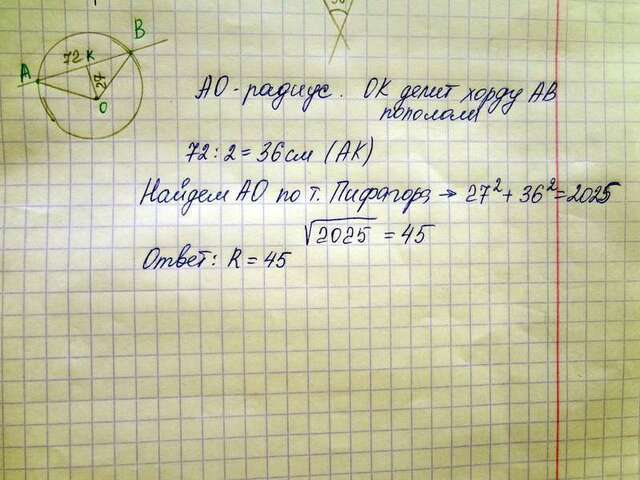 B
72 K
A
27
O
АО - радиус. ОК делит хорду АВ
пополам
72 : 2 = 36 см (АК)
Найдем АО по т. Пифагора → 27² + 36² = 2025
√2025 = 45
Ответ: R = 45